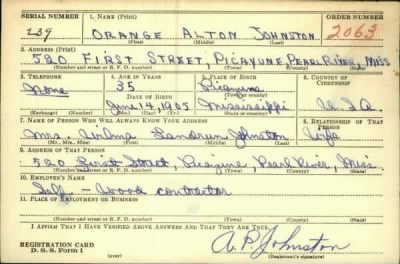 SERIAL NUMBER 1. NAME (Print) ORDER NUMBER
239 ORANGE ALTON JOHNSTON 2063
(First) (Middle) (Last)
2. ADDRESS (Print)
520 FIRST STREET, PICAYUNE, PEARL RIVER, MISS
(Number and street or R. F. D. number) (Town) (County) (State)
3. TELEPHONE 4. AGE IN YEARS 5. PLACE OF BIRTH 6. COUNTRY OF CITIZENSHIP
None 35 Picayune
DATE OF BIRTH (Town or county)
June 14, 1905 Mississippi U.S.A.
(Exchange) (Number) (Mo.) (Day) (Yr.) (State or country)
7. NAME OF PERSON WHO WILL ALWAYS KNOW YOUR ADDRESS 8. RELATIONSHIP OF THAT PERSON
Mrs. Wilma Landrum Johnston Wife
(Mr., Mrs., Miss) (First) (Middle) (Last)
9. ADDRESS OF THAT PERSON
520 First Street, Picayune, Pearl River, Miss.
(Number and street or R. F. D. number) (Town) (County) (State)
10. EMPLOYER'S NAME
Self - Wood contractor
11. PLACE OF EMPLOYMENT OR BUSINESS
(Number and street or R. F. D. number) (Town) (County) (State)
I AFFIRM THAT I HAVE VERIFIED ABOVE ANSWERS AND THAT THEY ARE TRUE.
REGISTRATION CARD
D. S. S. Form 1 (over) (Registrant's signature)
Johnston